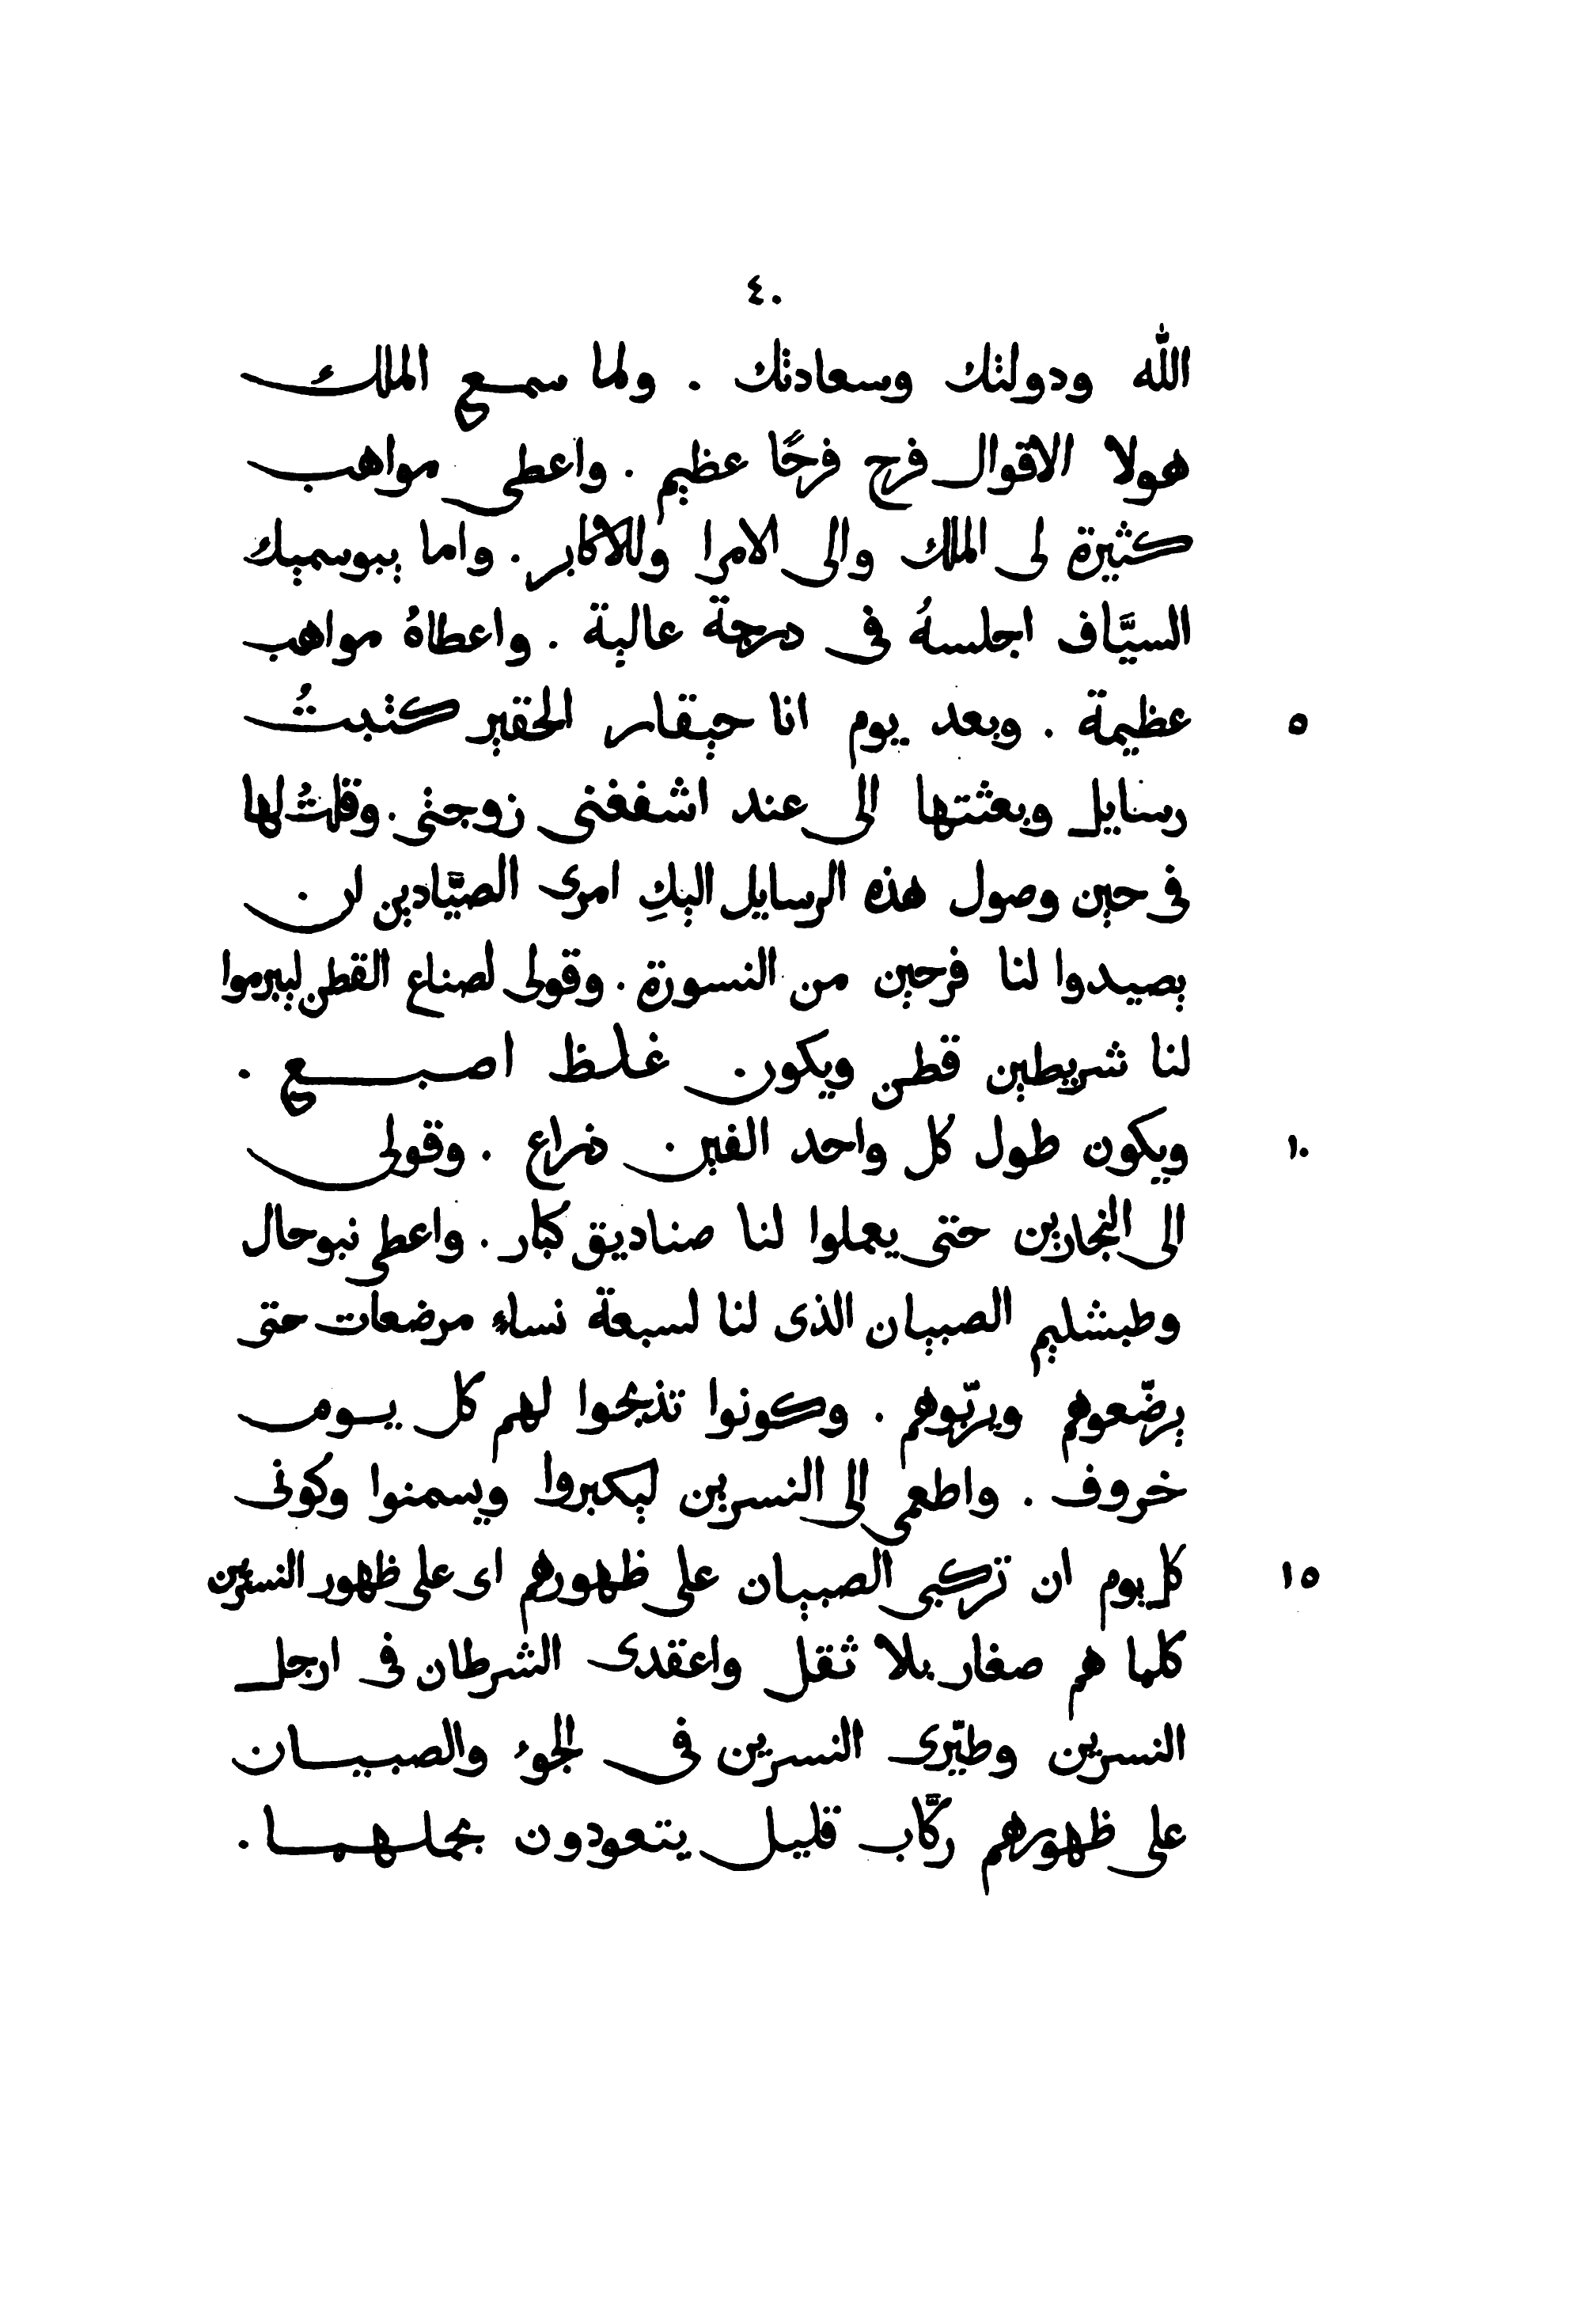 ٤٠
الله ودولتك وسعادتك . ولما سمع الملك
هولا الاقوال فرح فرحًا عظيم . واعطى مواهب
كثيرة لى الملك والى الامرا وللاكابر . واما يبوسميك
السيَّاف اجلسهُ فى درجة عالية . واعطاهُ مواهب
عظيمة . وبعد يوم انا حيقار الحقير كتبتُ ٥
رسايل وبعثتها الى عند اشفغنى زوجتى . وقلتُ لها
فى حين وصول هذه الرسايل اليكِ امرى الصيَّادين لن
يصيدوا لنا فرحين من النسورة . وقولى لصناع القطن ليبرموا
لنا شريطين قطن ويكون غلظ اصبع .
ويكون طول كل واحد الفين ذراع . وقولى ١٠
الى النجارين حتى يعملوا لنا صناديق كبار . واعطى نبوحال
وطبشليم الصبيان الذى لنا لسبعة نساء مرضعات حتى
يرضّعوهم ويربّوهم . وكونوا تذبحوا لهم كل يوم
خروف . واطعمى الى النسرين ليكبروا ويسمنوا وكونى
كل يوم ان تركبى الصبيان على ظهورهم اى على ظهور النسرين ١٥
كلما هم صغار بلا ثقل واعقدى الشرطان فى ارجل
النسرين وطيّرى النسرين فى الجوء والصبيان
على ظهورهم ركَّاب قليل يتعودون بحملهما .